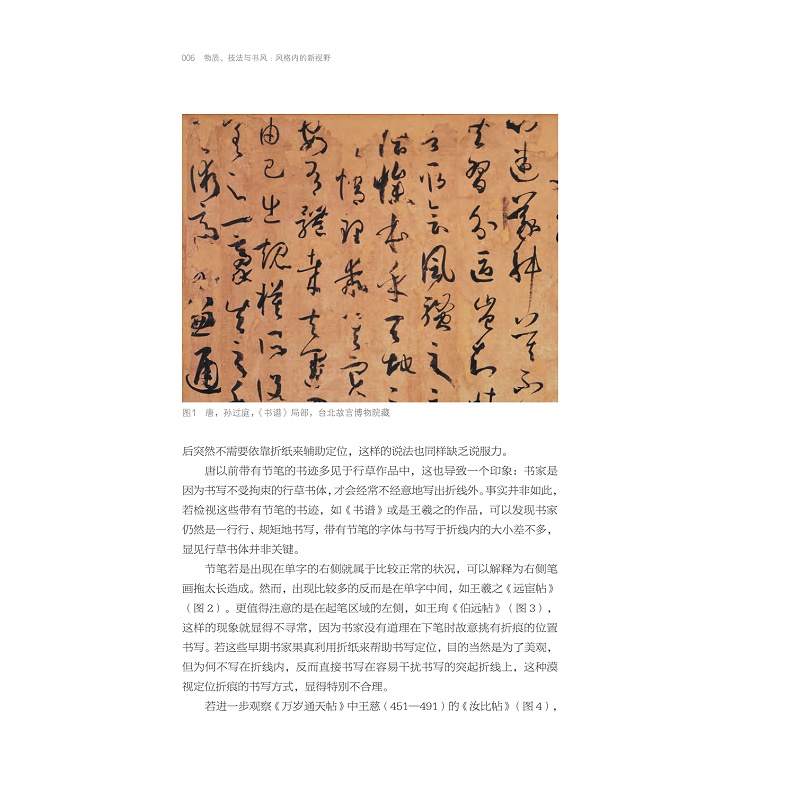 006 物质、技法与书风：风格内的新视野
迷義舛莫不
共習分區豈知
言取會風騷之
陰慘本乎天地之
情理乖其實
安有體哉夫運
由己出規模所設
差之一豪失之千
兼通
图1 唐，孙过庭，《书谱》局部，台北故宫博物院藏
后突然不需要依靠折纸来辅助定位，这样的说法也同样缺乏说服力。
唐以前带有节笔的书迹多见于行草作品中，这也导致一个印象：书家是
因为书写不受拘束的行草书体，才会经常不经意地写出折线外。事实并非如此，
若检视这些带有节笔的书迹，如《书谱》或是王羲之的作品，可以发现书家
仍然是一行行、规矩地书写，带有节笔的字体与书写于折线内的大小差不多，
显见行草书体并非关键。
节笔若是出现在单字的右侧就属于比较正常的状况，可以解释为右侧笔
画拖太长造成。然而，出现比较多的反而是在单字中间，如王羲之《远宦帖》
（图2）。更值得注意的是在起笔区域的左侧，如王珣《伯远帖》（图3），
这样的现象就显得不寻常，因为书家没有道理在下笔时故意挑有折痕的位置
书写。若这些早期书家果真利用折纸来帮助书写定位，目的当然是为了美观，
但为何不写在折线内，反而直接书写在容易干扰书写的突起折线上，这种漠
视定位折痕的书写方式，显得特别不合理。
若进一步观察《万岁通天帖》中王慈（451—491）的《汝比帖》（图4），